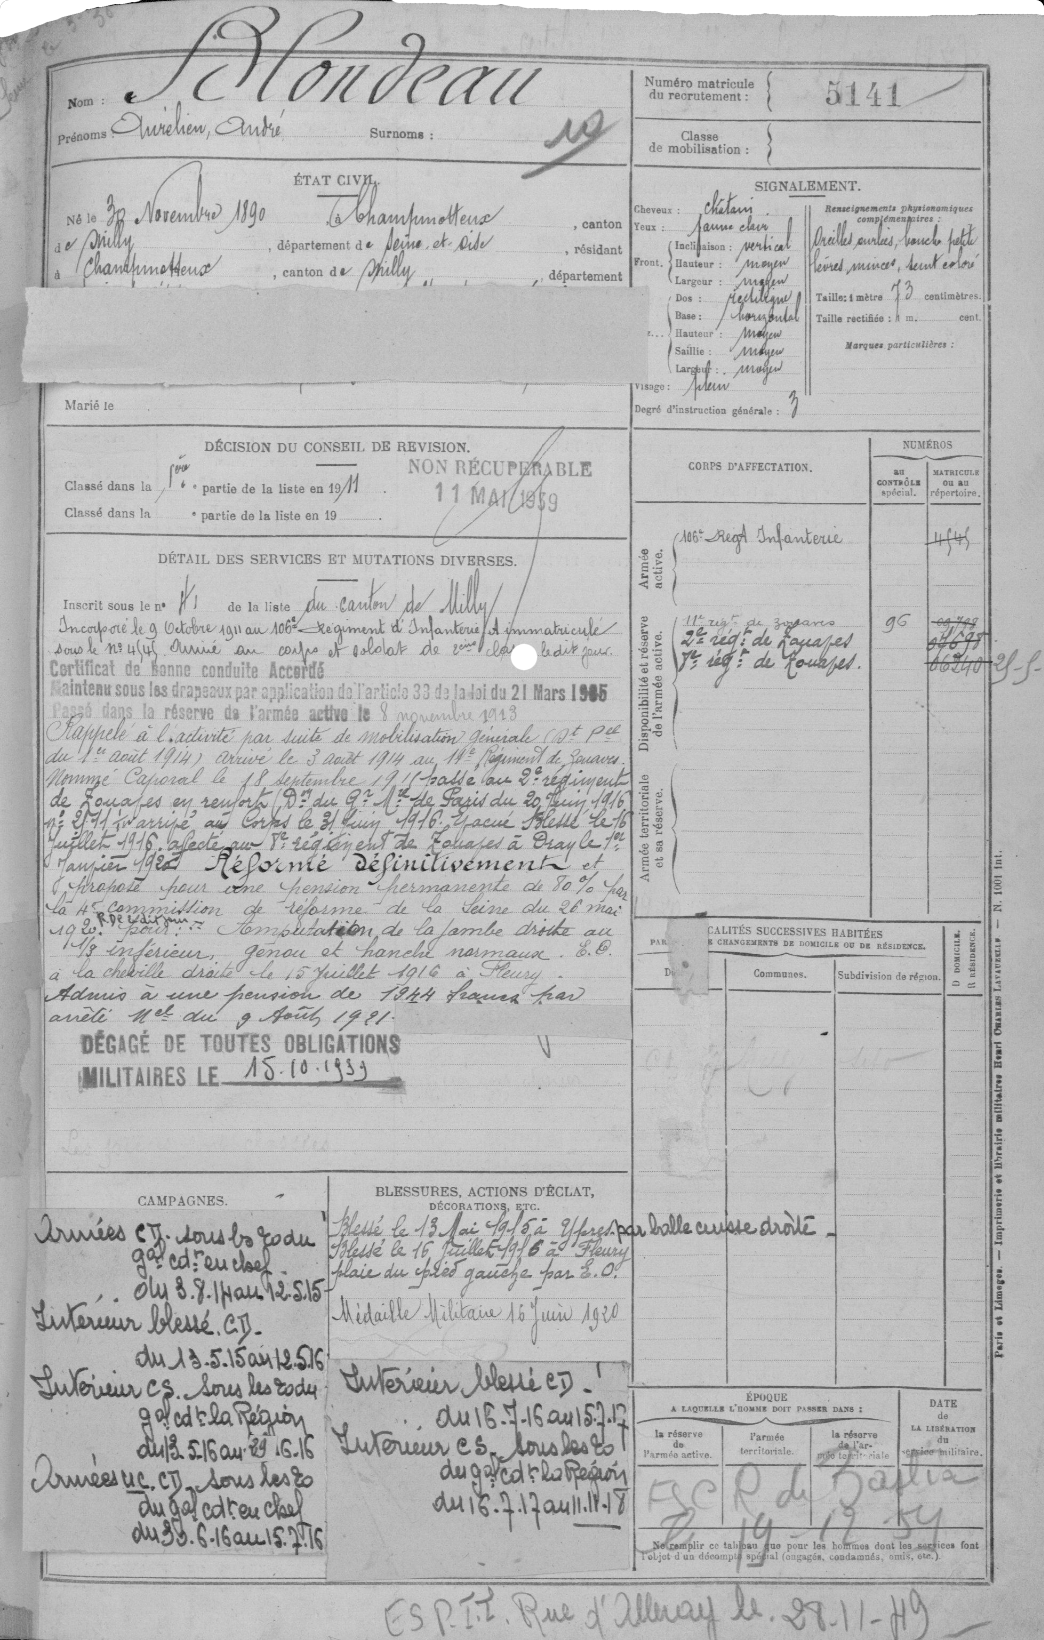 Nom : Blondeau
Prénoms : Aurélien, André Surnoms :
10
Numéro matricule du recrutement : 5141
Classe de mobilisation :
ÉTAT CIVIL.
Né le 30 Novembre 1890 à Champmotteux, canton
de Milly, département de Seine et Oise, résidant
à Champmotteux, canton de Milly, département
Marié le
SIGNALEMENT.
Cheveux : châtain.
Yeux : jaune clair
Front. Inclinaison : vertical
Hauteur : moyen
Largeur : moyen
Dos : rectiligne
Base : horizontal
Hauteur : moyen
Saillie : moyen
Largeur : moyen
Visage : plein
Degré d'instruction générale : 3
Renseignements physionomiques complémentaires :
Oreilles ourlées, bouche petite
lèvres minces, teint coloré
Taille : 1 mètre 73 centimètres.
Taille rectifiée : 1 m. cent.
Marques particulières :
DÉCISION DU CONSEIL DE REVISION.
Classé dans la 1ère partie de la liste en 1911.
Classé dans la e partie de la liste en 19 .
NON RÉCUPÉRABLE
11 MAI 1939
DÉTAIL DES SERVICES ET MUTATIONS DIVERSES.
Inscrit sous le n° 41 de la liste du canton de Milly
Incorporé le 9 Octobre 1911 au 106e Régiment d'Infanterie, Immatriculé
sous le N° 4545. Arrivé au corps et soldat de 2ème classe le dit jour.
Certificat de Bonne conduite Accordé
Maintenu sous les drapeaux par application de l'article 33 de la loi du 21 Mars 1905
Passé dans la réserve de l'armée active le 8 novembre 1913
Rappelé à l'activité par suite de mobilisation générale (Dt Pel
du 1er août 1914) arrivé le 3 août 1914 au Régiment de Zouaves.
Nommé Caporal le 18 septembre 1915 passé au 2e régiment
de Zouaves en renfort (Don du Gr Mre de Paris du 20 Juin 1916
arrivé au Corps le 31 Juin 1916. Evacué Blessé le 16
Juillet 1916. afecté au 8e régiment de Zouaves à Oran le 1er
Janvier 1920 Réformé définitivement et
proposé pour une pension permanente de 80% par
la 4e commission de réforme de la Seine du 26 mai
1920. pour : Amputation de la jambe droite au
1/3 inférieur, génou et hanche normaux. E.O.
à la cheville droite le 15 Juillet 1916 à Fleury
Admis à une pension de 1944 francs par
arrêté Mel du 9 Août 1921.
DÉGAGÉ DE TOUTES OBLIGATIONS
MILITAIRES LE 15.10.1939
CORPS D'AFFECTATION.
NUMÉROS
au CONTRÔLE spécial.
MATRICULE OU AU répertoire.
Armée active.
106e Régt Infanterie 4545
Disponibilité et réserve de l'armée active.
11e régt de zouaves 96
2e régt de Zouaves
8e régt de Zouaves. 06240
Armée territoriale et sa réserve.
LOCALITÉS SUCCESSIVES HABITÉES
CHANGEMENTS DE DOMICILE OU DE RÉSIDENCE.
Communes.
Subdivision de région.
D DOMICILE.
R RÉSIDENCE.
CAMPAGNES.
Armées CD. sous les ço du
gal cdt en chef
du 3.8.14 au 12.5.15
Intérieur blessé. CD.
du 13.5.15 au 12.5.16
Intérieur CS. Sous les ço du
gal cdt la Région
du 13.5.16 au 29.6.16
Armées uc. CD. sous les ço
du gal cdt en chef
du 30.6.16 au 15.7.16
BLESSURES, ACTIONS D'ÉCLAT,
DÉCORATIONS, ETC.
Blessé le 13 Mai 1915 à Ypres. par balle cuisse droite
Blessé le 16 Juillet 1916 à Fleury
plaie du pied gauche par E.O.
Médaille Militaire 16 Juin 1920
Intérieur blessé CD
du 16.7.16 au 15.7.17
Intérieur CS. Sous les ço
du gal cdt la Région
du 16.7.17 au 11.11.18
ÉPOQUE
A LAQUELLE L'HOMME DOIT PASSER DANS :
la réserve de l'armée active.
l'armée territoriale.
la réserve de l'armée territoriale
DATE de LA LIBÉRATION du service militaire.
ESC R de Bastia
19-12-54
Ne remplir ce tableau que pour les hommes dont les services font
l'objet d'un décompte spécial (engagés, condamnés, omis, etc.).
Paris et Limoges. — Imprimerie et librairie militaires Henri CHARLES LAVAUZELLE. — N. 1001 int.
ESP.I.I. Rue d'Alleray le. 28-11-49